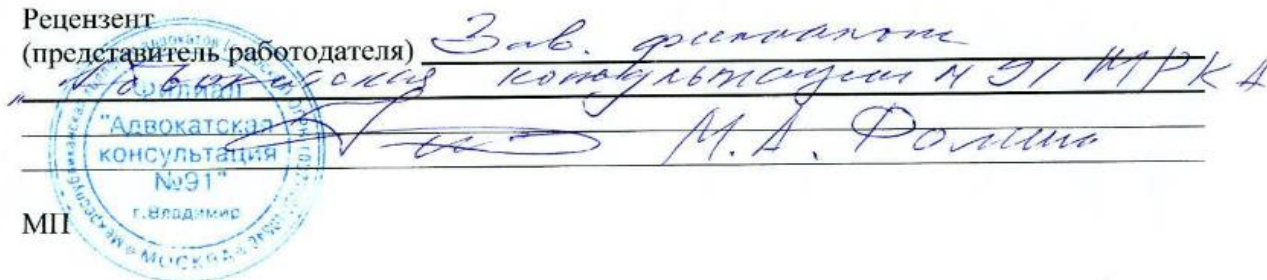 Рецензент
(представитель работодателя) Зав. филиалом
"Адвокатская консультация № 91 МРКА
М.А. Фомин
Филиал
"Адвокатская
консультация
№91"
г.Владимир
МОСКВА
МП